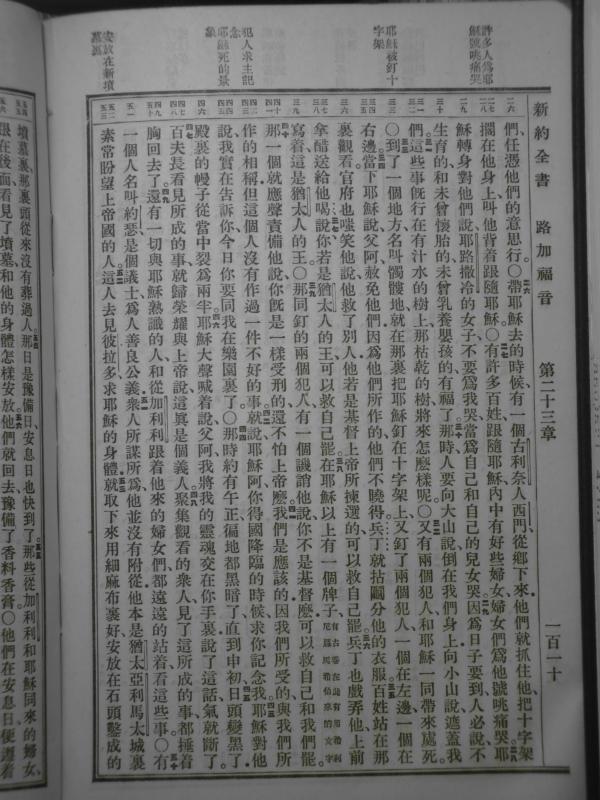 新約全書 路加福音 第二十三章 一百一十
許多人爲耶
穌號咷痛哭
耶穌被釘十
字架
犯人求主記
念
耶穌死的景
象
安放在新墳
墓裏
們任憑他們的意思行。○帶耶穌去的時候有一個古利奈人西門從鄉下來他們就抓住他把十字架
擱在他身上叫他背着跟隨耶穌。○有許多百姓跟隨耶穌內中有好些婦女婦女們爲他號咷痛哭耶
穌轉身對他們說耶路撒冷的女子不要爲我哭當爲自己和自己的兒女哭因爲日子要到人必說不
生育的和未曾懷胎的未曾乳養嬰孩的有福了那時人要向大山說倒在我們身上向小山說遮蓋我
們這些事旣行在有汁水的樹上那枯乾的樹將來怎麼樣呢。○又有兩個犯人和耶穌一同帶來處死。
○到了一個地方名叫髑髏地就在那裏把耶穌釘在十字架上又釘了兩個犯人一個在左邊一個在
右邊當下耶穌說父阿赦免他們因爲他們所作的他們不曉得兵丁就拈鬮分他的衣服百姓站在那
裏觀看官府也嗤笑他說他救了別人他若是基督上帝所揀選的可以救自己罷兵丁也戲弄他上前
拿醋送給他喝說你若是猶太人的王可以救自己罷在耶穌以上有一個牌子有古卷在此有用希利尼羅馬希伯來的文字
寫着這是猶太人的王。○那同釘的兩個犯人有一個譏誚他說你不是基督麼可以救自己和我們罷。
那一個就應聲責備他說你旣是一樣受刑的還不怕上帝麼我們是應該的因我們所受的與我們所
作的相稱但這個人沒有作過一件不好的事就說耶穌阿你得國降臨的時候求你記念我耶穌對他
說我實在告訴你今日你要同我在樂園裏了。○那時約有午正徧地都黑暗了直到申初日頭變黑了
殿裏的幔子從當中裂爲兩半耶穌大聲喊着說父阿我將我的靈魂交在你手裏說了這話氣就斷了。
百夫長看見所成的事就歸榮耀與上帝說這眞是個義人聚集觀看的衆人見了這所成的事都捶着
胸回去了還有一切與耶穌熟識的人和從加利利跟着他來的婦女們都遠遠的站着看這些事。○有
一個人名叫約瑟是個議士爲人善良公義衆人所謀所爲他並沒有附從他本是猶太亞利馬太城裏
素常盼望上帝國的人這人去見彼拉多求耶穌的身體就取下來用細麻布裹好安放在石頭鑿成的
墳墓裏那裏頭從來沒有葬過人那日是豫備日安息日也快到了那些從加利利和耶穌同來的婦女
跟在後面看見了墳墓和他的身體怎樣安放他們就回去豫備了香料香膏。○他們在安息日便遵着